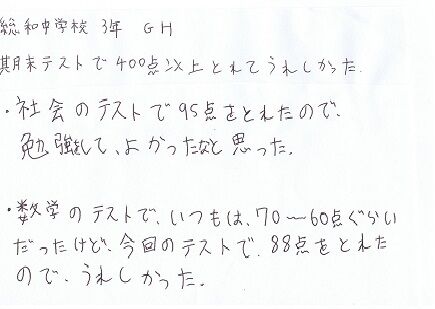 総和中学校 3年 GH
期末テストで400点以上とれてうれしかった.
・社会のテストで95点をとれたので、
勉強して、よかったなと思った。
・数学のテストで、いつもは、70〜60点ぐらい
だったけど、今回のテストで、88点をとれた
ので、うれしかった。